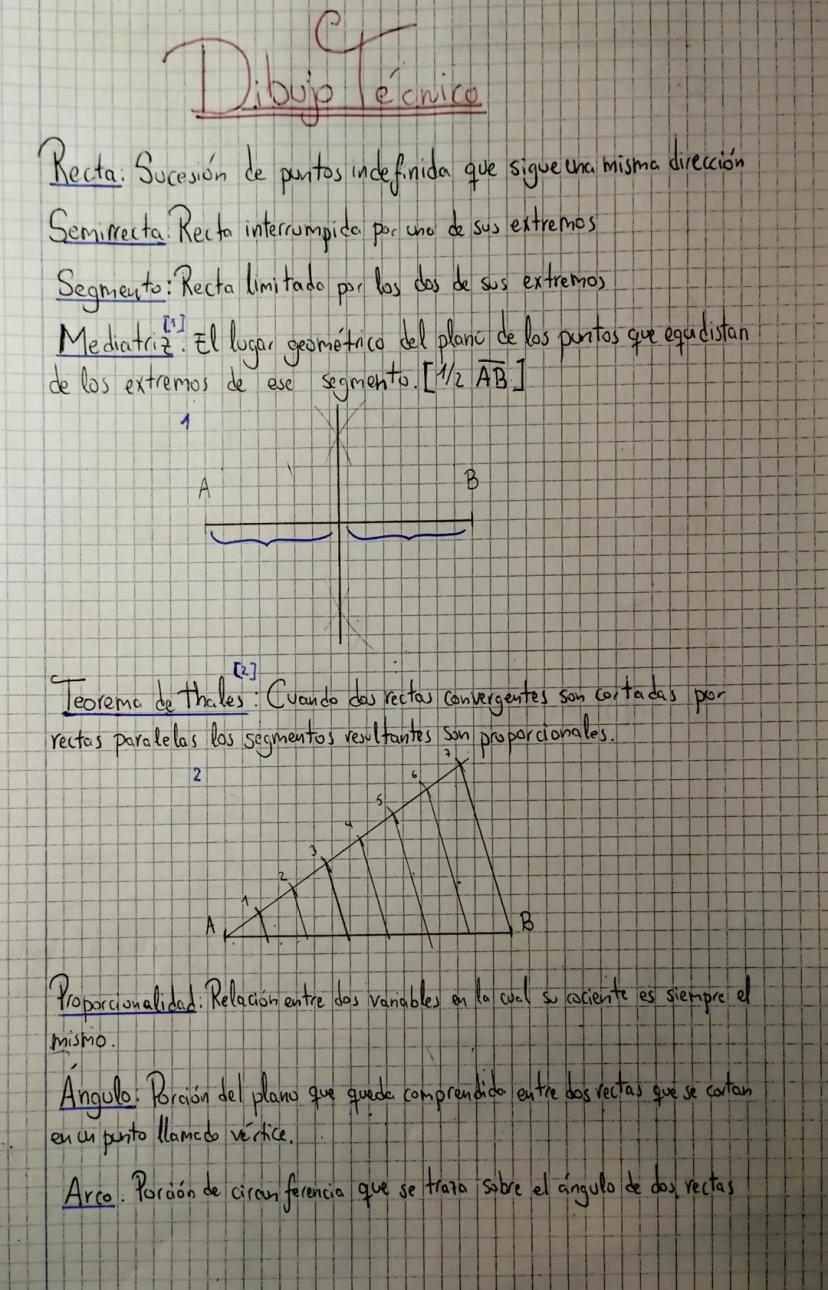 Dibujo Técnico
Recta: Sucesión de puntos indefinida que sigue una misma dirección
Semirrecta: Recta interrumpida por uno de sus extremos
Segmento: Recta limitada por los dos de sus extremos
Mediatriz[1]: El lugar geométrico del plano de los puntos que equidistan
de los extremos de ese segmento. [1/2 AB]
1
A B
Teorema de thales[2]: Cuando dos rectas convergentes son cortadas por
rectas paralelas los segmentos resultantes son proporcionales.
2
1 2 3 4 5 6 7
A B
Proporcionalidad: Relación entre dos variables en la cual su cociente es siempre el
mismo.
Ángulo: Porción del plano que queda comprendido entre dos rectas que se cortan
en un punto llamado vértice.
Arco: Porción de circunferencia que se traza sobre el ángulo de dos rectas